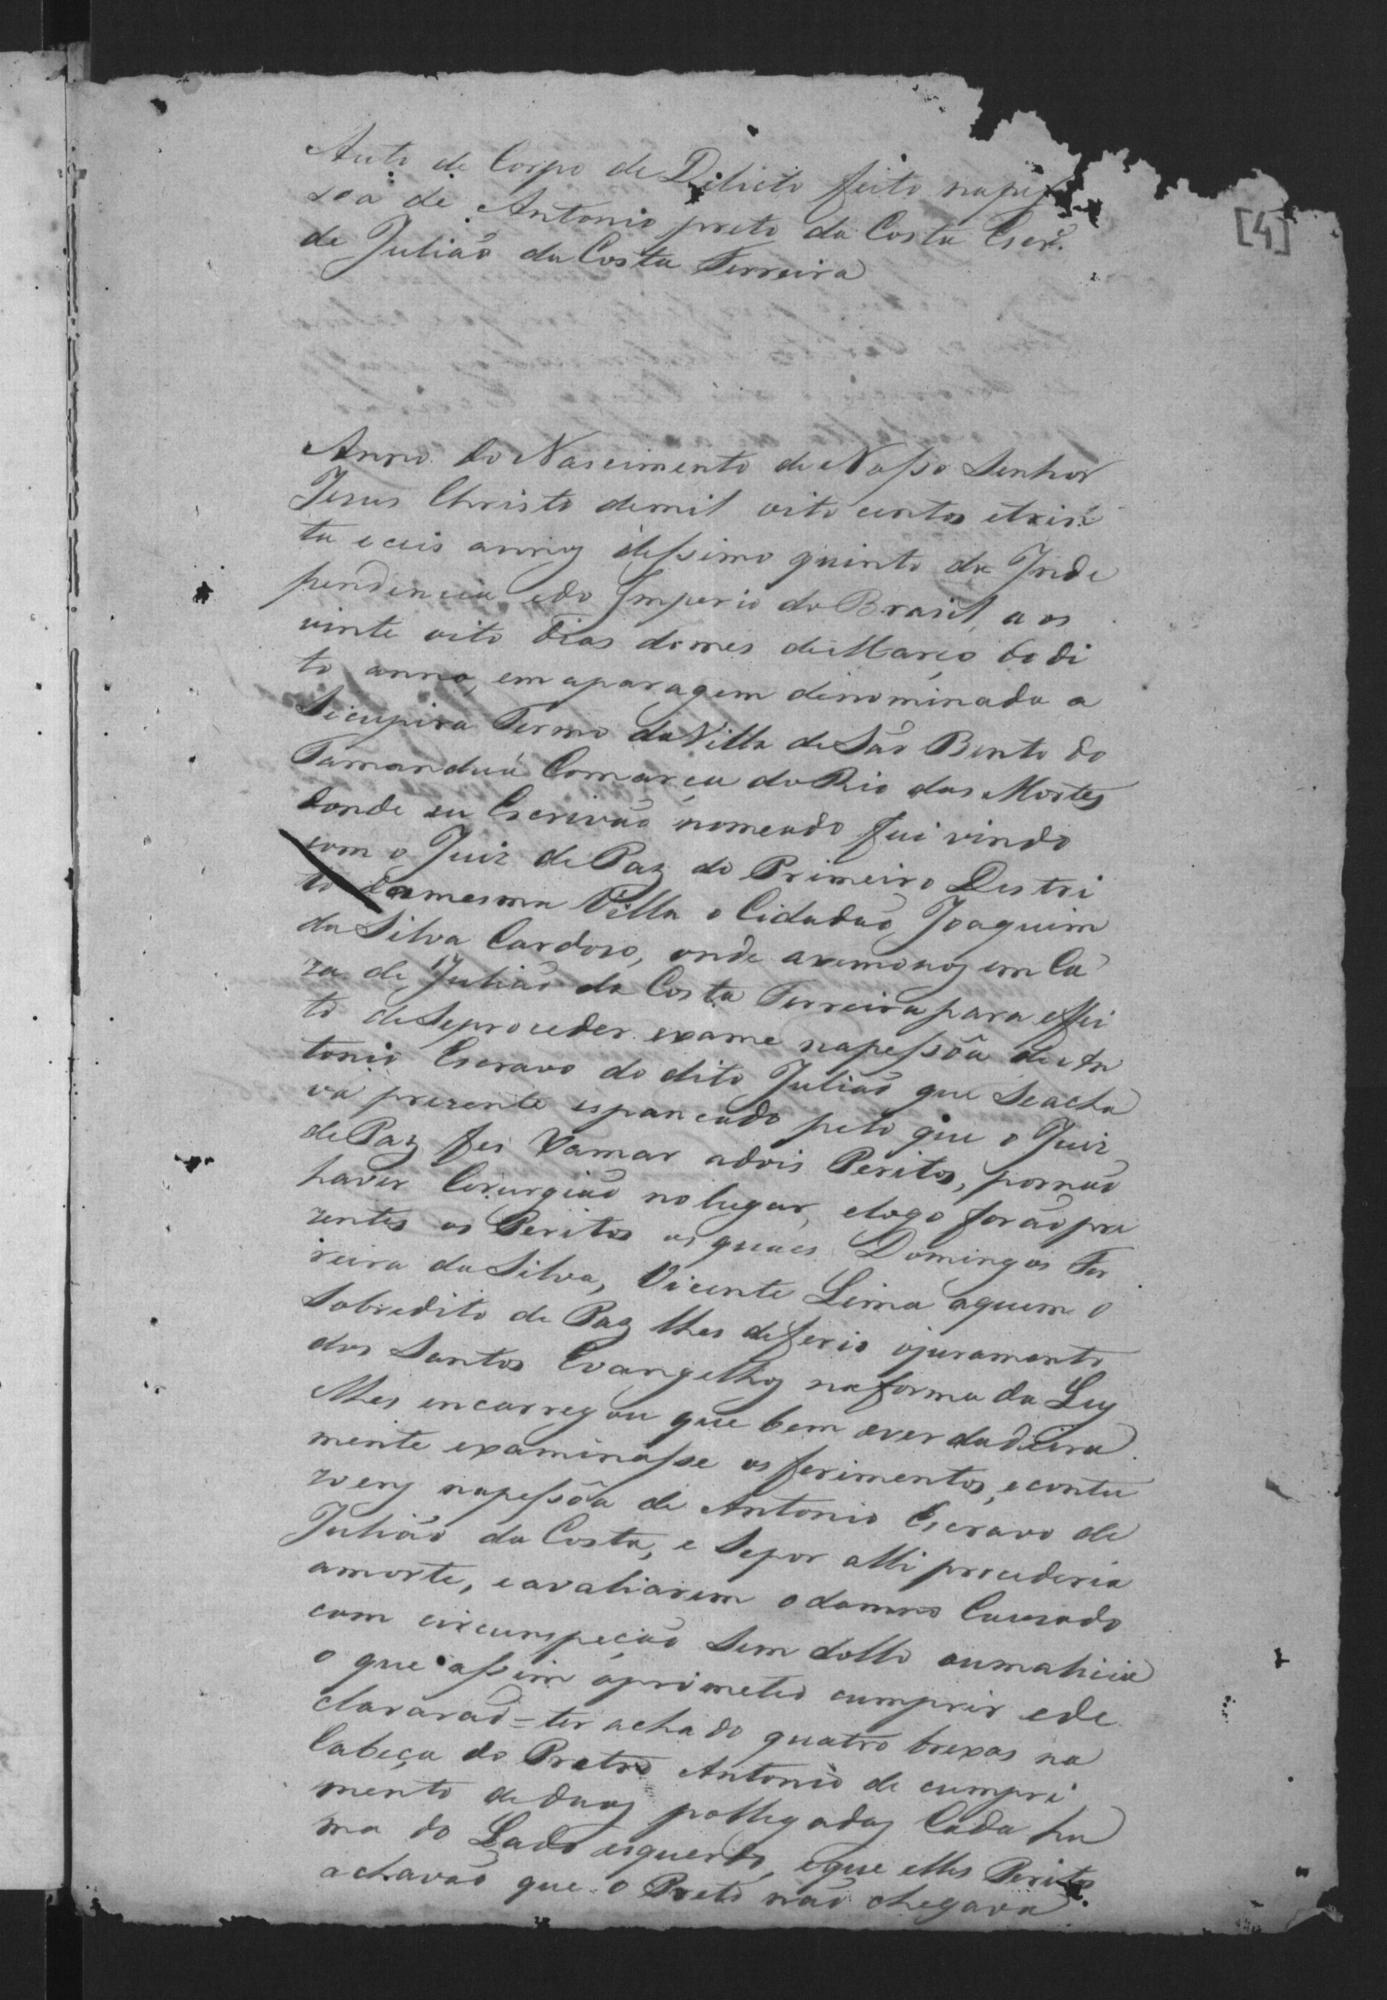 Auto de Corpo de Dilicto feito napes
soa de Antonio preto da Costa Escr.º
de Julião da Costa Ferreira
[4]
Anno do Nascimento de Nosso Senhor
Jesus Christo demil oito centos etrin
ta eceis annos dessimo quinto da Inde
pendencia edo Imperio do Brasil, aos
vinte oito dias domes deMarço do di
to anno, em aparagem denominada a
Sicupira Termo daVilla deSão Bento do
Tamanduá Comarca doRio das Mortes
donde eu Escrivão nomeado fui vindo
com o Juiz de Paz do Primeiro Destri
to damesma Villa o Cidadão Joaquim
daSilva Cardoso, onde axemonos em Ca
za de Julião da Costa Ferreira para efei
to deSeproceder exame napessôa de An
tonio Escravo do dito Julião que Seacha
va prezente espancado pelo que o Juiz
dePaz fes xamar adois Peritos, pornão
haver Cirurgião nolugar, elogo forão pre
zentes os Peritos os quaes Domingos Fer
reira daSilva, Vicente Lima aquem o
Sobredito de Paz lhes deferio ojuramento
dos Santos Evangelhos naforma da Ley
lhes encarregou que bem everdadeira
mente examinasse os ferimentos, econtu
zoens napessôa de Antonio Escravo de
Julião da Costa, e Sepor alli procederia
amorte, eavaliarem odamno Cauzado
com circunspeção Sem dollo oumalicia
o que assim oprometeo cumprir ede
clararão = ter achado quatro brexas na
Cabeça do Preto Antonio de cumpri
mento deduas pollegadas Cada hu
ma do Lado esquerdo, eque elles Peritos
achavão que o Preto não chegava